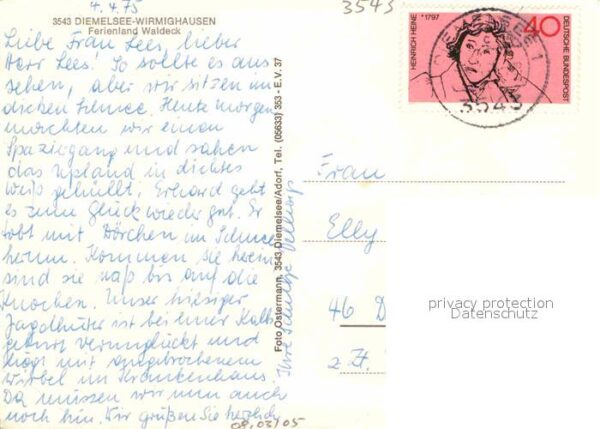 4.4.75
3543
3543 DIEMELSEE-WIRMIGHAUSEN
Ferienland Waldeck
Liebe Frau Lees, lieber
Herr Lees! So sollte es aus
sehen, aber wir sitzen im
dicken Schnee. Heute morgen
machten wir einen
Spaziergang und sahen
das Upland in dichtes
Weiß gehüllt. Erhard geht
es zum Glück wieder gut. Er
tobt mit Dörchen im Schnee
herum. Kommen sie herein
sind sie naß bis auf die
Knochen. Unser hiesiger
Jagdhüter ist bei einer Kalb
geburt verunglückt und
liegt mit angebrochenem
Wirbel im Krankenhaus.
Da müssen wir nun auch
noch hin. Wir grüßen Sie herzlich
Ihre
Foto Ostermann, 3543 Diemelsee/Adorf, Tel. (05633) 353 - E.V. 37
HEINRICH HEINE *1797
40
DEUTSCHE BUNDESPOST
3543
Frau
Elly
46 D
z. Zt.
privacy protection
Datenschutz
08.03/05